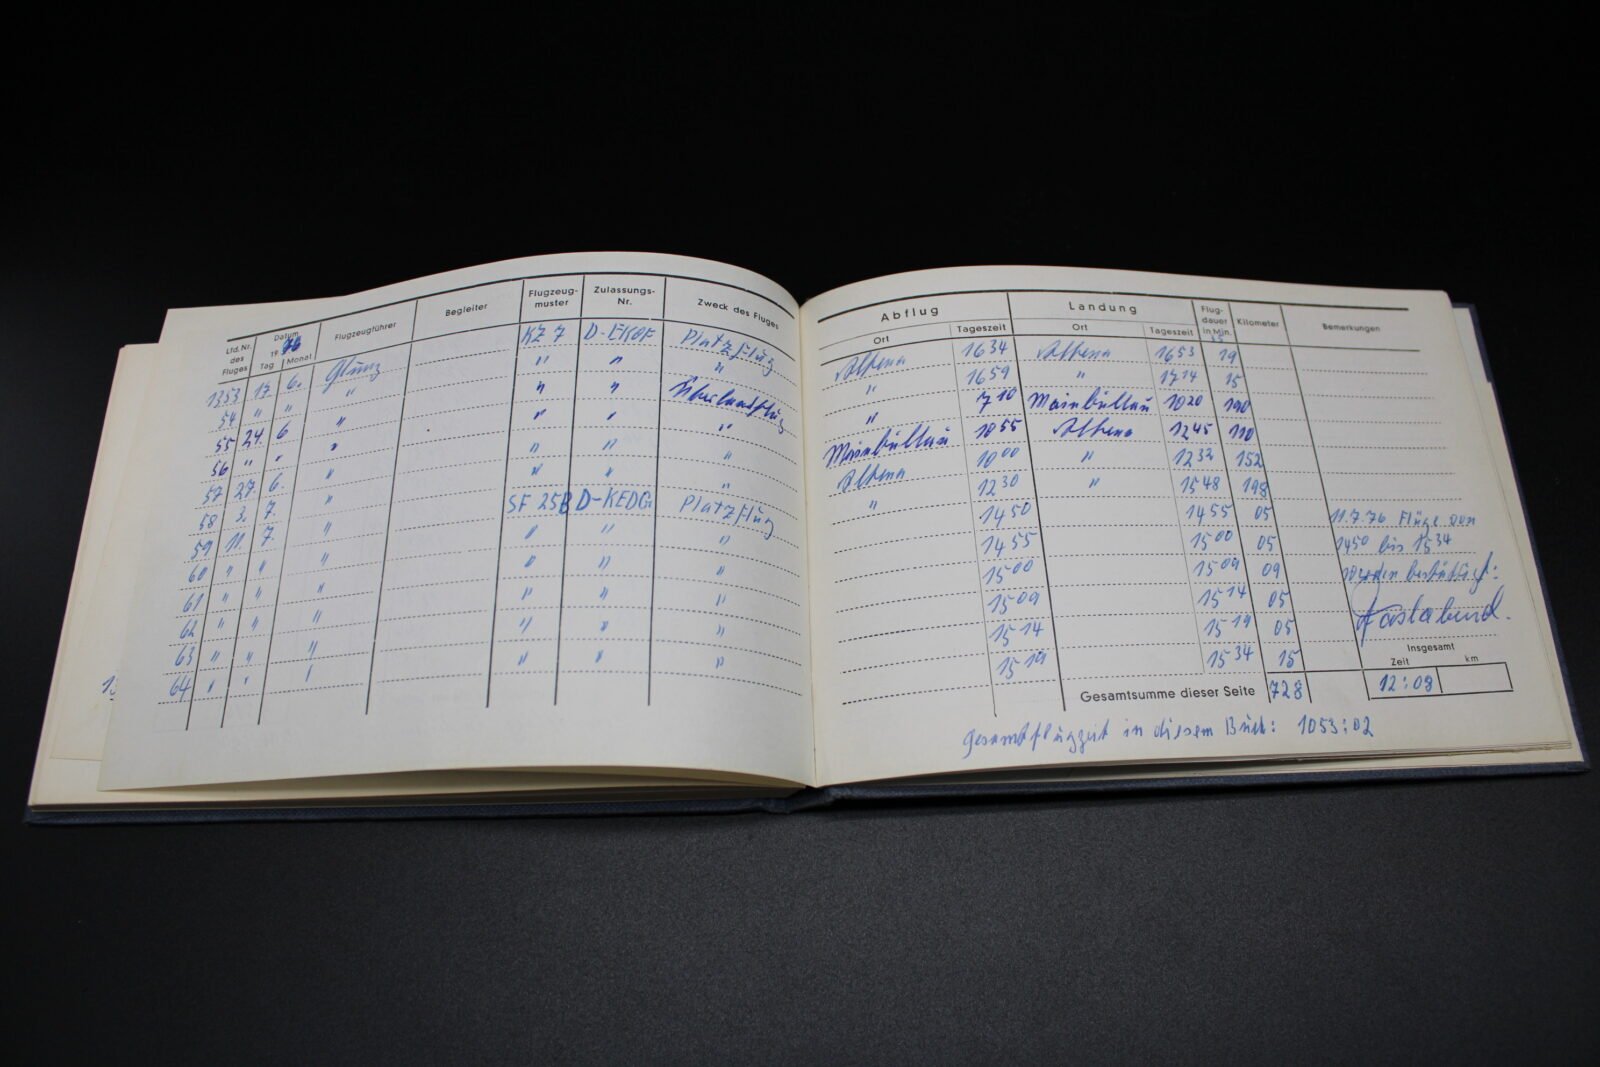 Lfd. Nr. des Fluges | Datum 1976 Tag | Monat | Flugzeugführer | Begleiter | Flugzeug-muster | Zulassungs-Nr. | Zweck des Fluges
1353 | 17. | 6. | Glunz | | KZ 7 | D-EKOF | Platzflug
54 | " | " | " | | " | " | "
55 | 24. | 6 | " | | " | " | Überlandflug
56 | " | " | " | | " | " | "
57 | 27. | 6. | " | | " | " | "
58 | 3. | 7. | " | | " | " | "
59 | 11. | 7. | " | | SF 25B | D-KEDG | Platzflug
60 | " | " | " | | " | " | "
61 | " | " | " | | " | " | "
62 | " | " | " | | " | " | "
63 | " | " | " | | " | " | "
64 | " | " | " | | " | " | "
Abflug | Landung | Flug-dauer in Min. | Kilometer | Bemerkungen
Ort | Tageszeit | Ort | Tageszeit
Altena | 1634 | Altena | 1653 | 19
" | 1659 | " | 1714 | 15
" | 710 | Mainbullau | 1020 | 190
Mainbullau | 1055 | Altena | 1245 | 110
Altena | 1000 | " | 1232 | 152
" | 1230 | " | 1548 | 198
1450 | 1455 | 05 | 11.7.76 Flüge von
1455 | 1500 | 05 | 1450 bis 1534
1500 | 1509 | 09 | werden bestätigt:
1509 | 1514 | 05 | Fastabend.
1514 | 1519 | 05
1519 | 1534 | 15
Insgesamt
Zeit | km
Gesamtsumme dieser Seite | 728 | 12:08
Gesamtflugzeit in diesem Buch: 1053:02